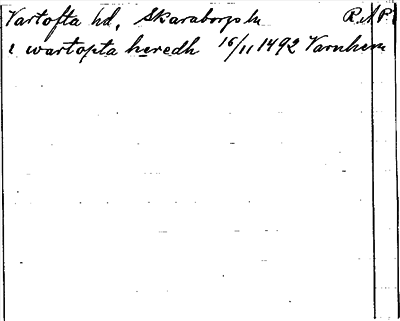 Vartofta hd, Skaraborgs ln R.A.P.
i wartopta heredh 16/11 1492 Varnhem